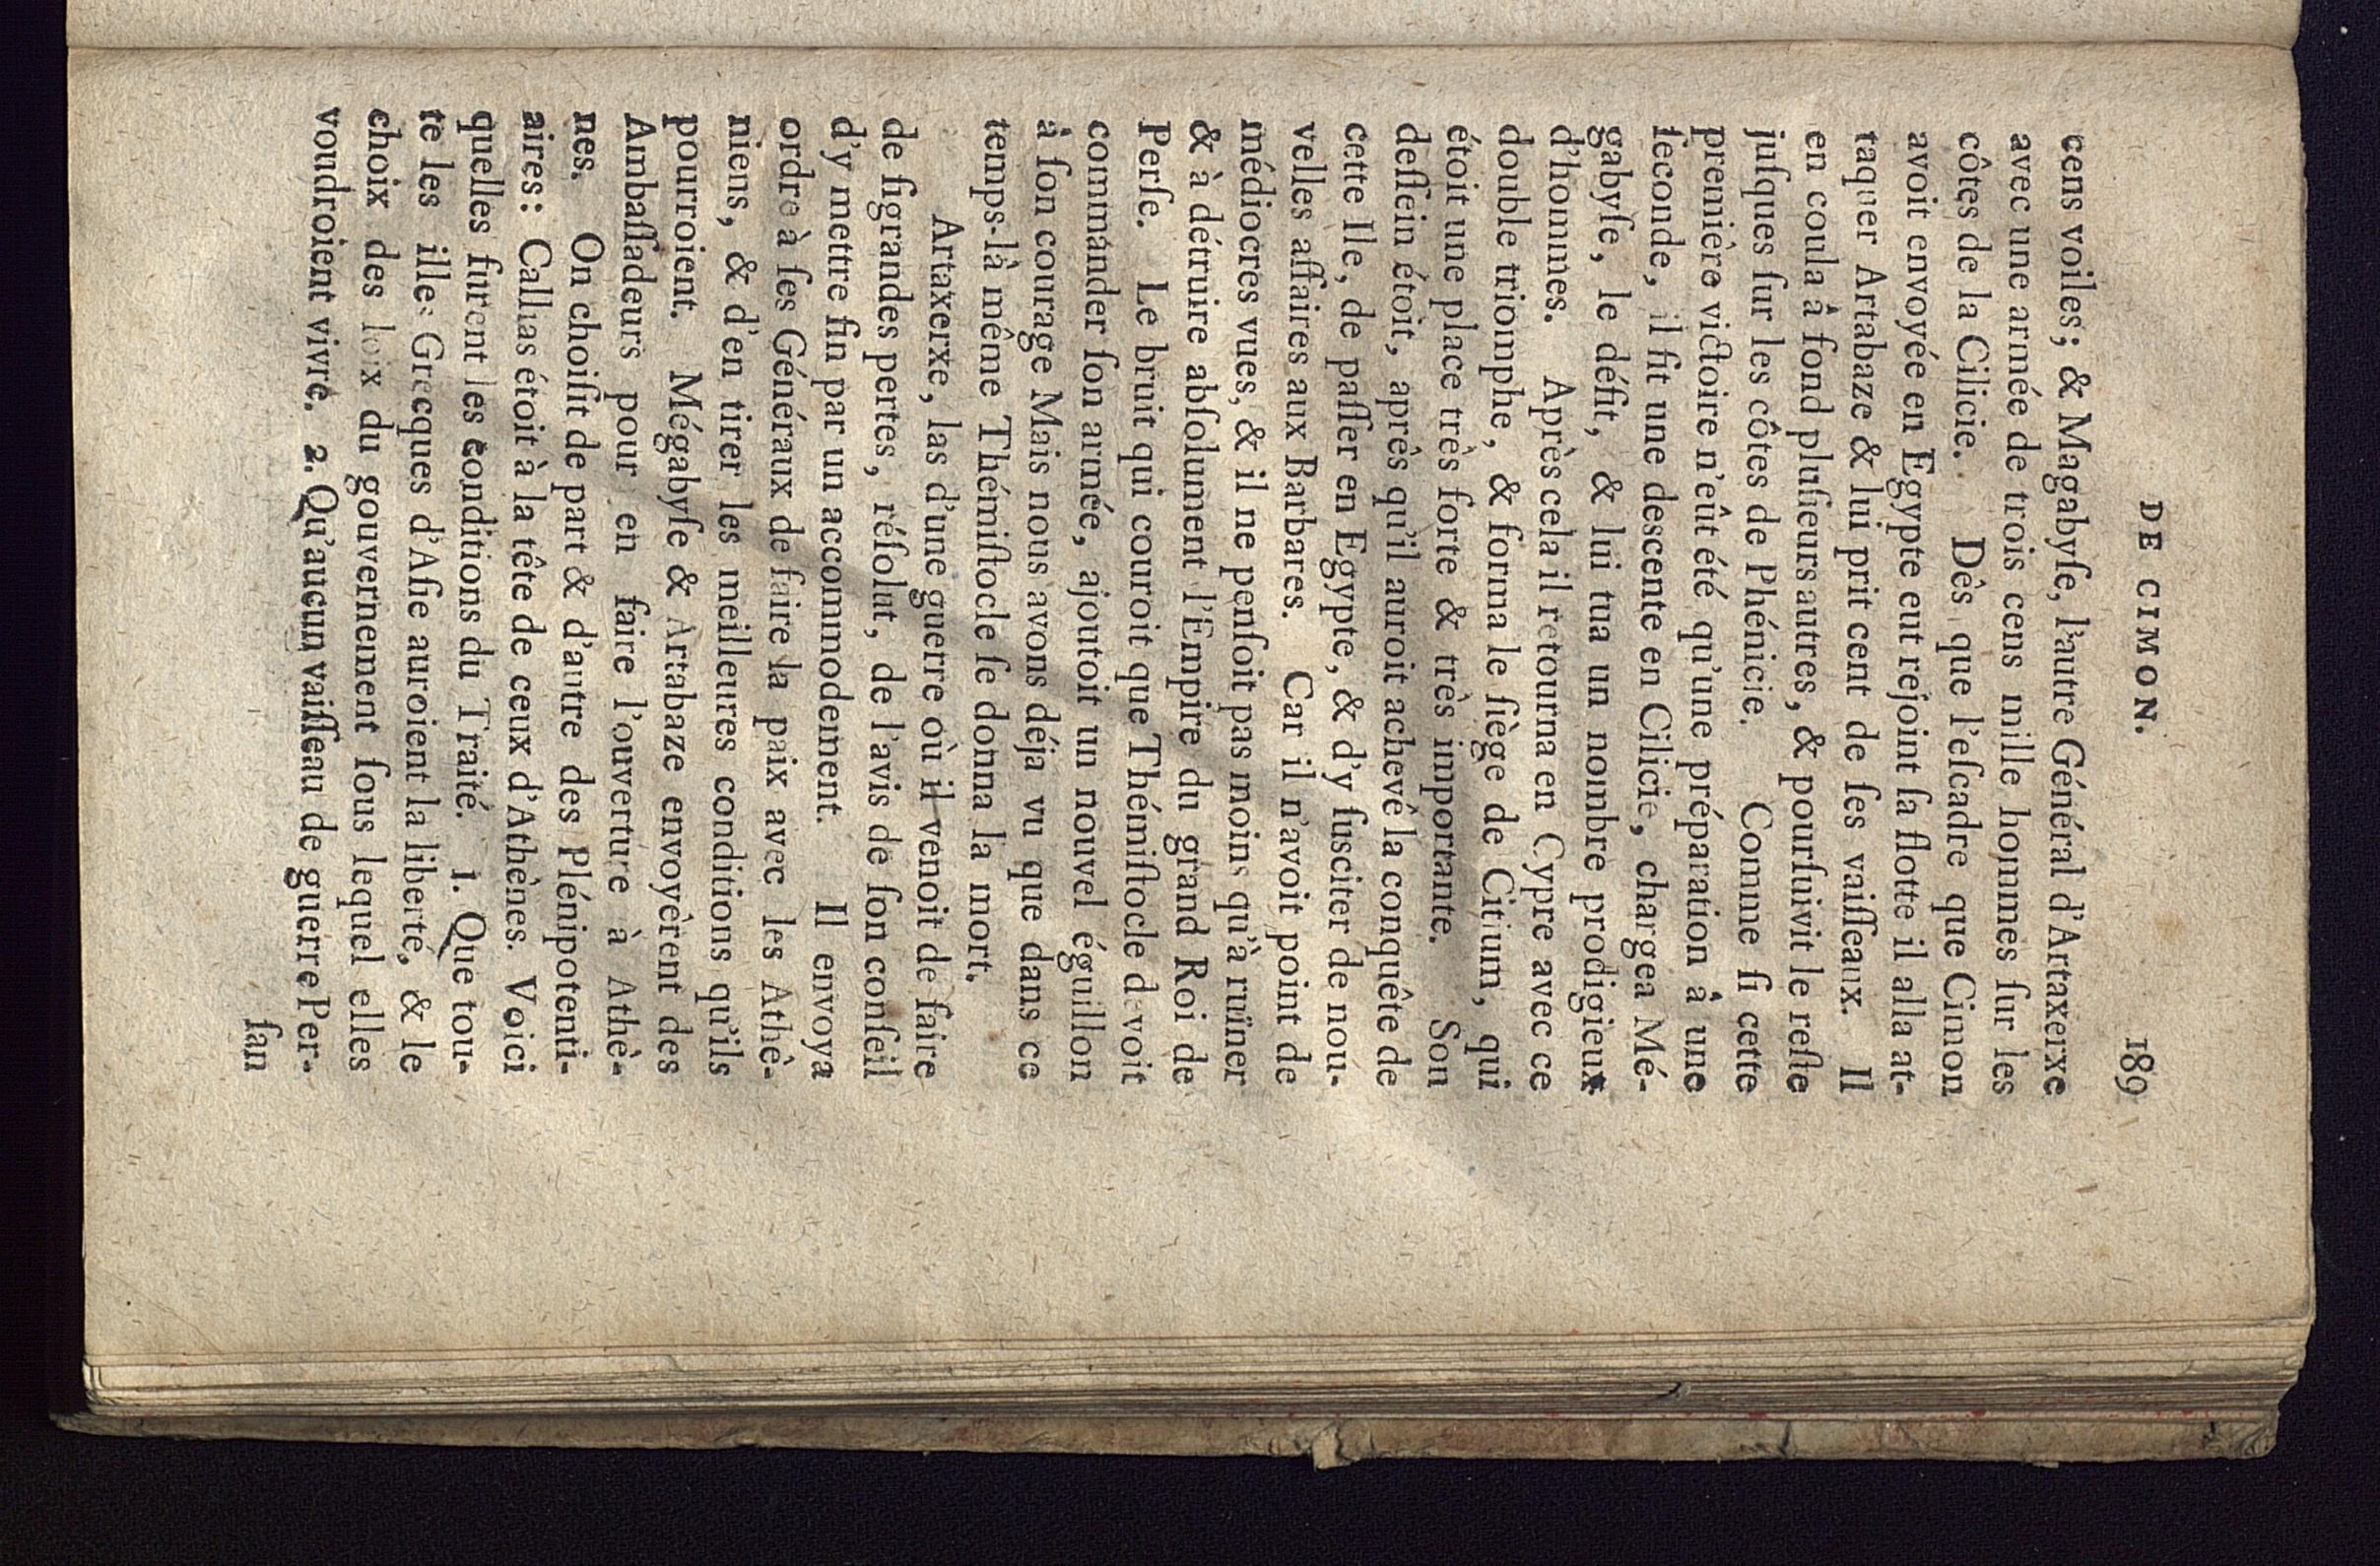 DE CIMON. 189
cens voiles; & Magabyſe, l'autre Général d'Artaxerxe
avec une armée de trois cens mille hommes ſur les
côtes de la Cilicie. Dès que l'eſcadre que Cimon
avoit envoyée en Egypte eut rejoint ſa flotte il alla at-
taquer Artabaze & lui prit cent de ſes vaiſſeaux. Il
en coula à fond pluſieurs autres, & pourſuivit le reſte
juſques ſur les côtes de Phénicie. Comme ſi cette
première victoire n'eût été qu'une préparation à une
ſeconde, il fit une descente en Cilicie, chargea Mé-
gabyſe, le défit, & lui tua un nombre prodigieux
d'hommes. Après cela il retourna en Cypre avec ce
double triomphe, & forma le ſiège de Citium, qui
étoit une place très forte & très importante. Son
deſſein étoit, après qu'il auroit achevé la conquête de
cette Ile, de paſſer en Egypte, & d'y ſuſciter de nou-
velles affaires aux Barbares. Car il n'avoit point de
médiocres vues, & il ne penſoit pas moins qu'à ruïner
& à détruire abſolument l'Empire du grand Roi de
Perſe. Le bruit qui couroit que Thémiſtocle devoit
commander ſon armée, ajoutoit un nouvel éguillon
à ſon courage Mais nous avons déja vu que dans ce
temps-là même Thémiſtocle ſe donna la mort.
Artaxerxe, las d'une guerre où il venoit de faire
de ſigrandes pertes, réſolut, de l'avis de ſon conſeil
d'y mettre fin par un accommodement. Il envoya
ordre à ſes Généraux de faire la paix avec les Athè-
niens, & d'en tirer les meilleures conditions qu'ils
pourroient. Mégabyſe & Artabaze envoyèrent des
Ambaſſadeurs pour en faire l'ouverture à Athè-
nes. On choiſit de part & d'autre des Plénipotenti-
aires: Callias étoit à la tête de ceux d'Athènes. Voici
quelles furent les conditions du Traité. 1. Que tou-
te les illes Grecques d'Aſie auroient la liberté, & le
choix des loix du gouvernement ſous lequel elles
voudroient vivre. 2. Qu'aucun vaiſſeau de guerre Per-
ſan